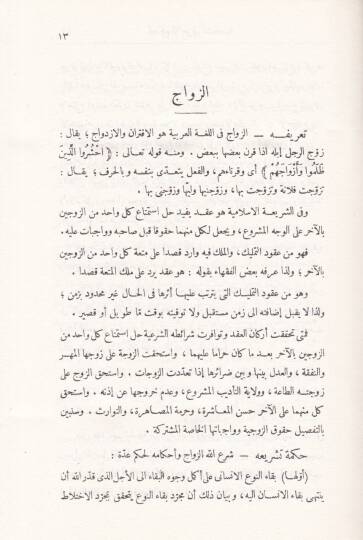 ١٣
الزواج
تعريفه — الزواج فى اللغة العربية هو الاقتران والازدواج؛ يقال :
زوّج الرجل إبله اذا قرن بعضها ببعض . ومنه قوله تعالى : ﴿ احْشُرُوا الَّذِينَ
ظَلَمُوا وَأَزْوَاجَهُمْ ﴾ أى وقرناءهم ، والفعل يتعدّى بنفسه وبالحرف؛ يقال :
تزوّجت فلانة وتزوّجت بها، وزوّجنيها وليّها وزوّجنى بها .
وفى الشريعة الاسلامية هو عقد يفيد حل استمتاع كل واحد من الزوجين
بالآخر على الوجه المشروع، ويجعل لكل منهما حقوقا قبل صاحبه وواجبات عليه.
فهو من عقود التمليك، والملك فيه وارد قصدا على متعة كل واحد من الزوجين
بالآخر؛ ولذا عرفه بعض الفقهاء بقوله : هو عقد يرد على ملك المتعة قصدا .
وهو من عقود التمليك التى يترتب عليها أثرها فى الحال غير محدود بزمن؛
ولذا لا يقبل إضافته الى زمن مستقبل ولا توقيته بوقت مّا طويل أو قصير .
فتى تحققت أركان العقد وتوافرت شرائطه الشرعية حل استمتاع كل واحد من
الزوجين بالآخر بعد ما كان حراما عليهما ، واستحقت الزوجة على زوجها المهر
والنفقة ، والعدل بينها وبين ضرائرها إذا تعدّدت الزوجات . واستحق الزوج على
زوجته الطاعة ، وولاية التأديب المشروع، وعدم خروجها عن إذنه . واستحق
كل منهما على الآخر حسن المعاشرة، وحرمة المصاهرة، والتوارث . وسنبين
بالتفصيل حقوق الزوجية وواجباتها الخاصة المشتركة .
حكمة تشريعه — شرع الله الزواج وأحكامه لحكم عدّة :
(أوّلها) بقاء النوع الانسانى على أكمل وجوه البقاء الى الأجل الذى قدّر الله أن
ينتهى بقاء الانسان اليه، وبيان ذلك أن مجرّد بقاء النوع يتحقق بمجرّد الاختلاط